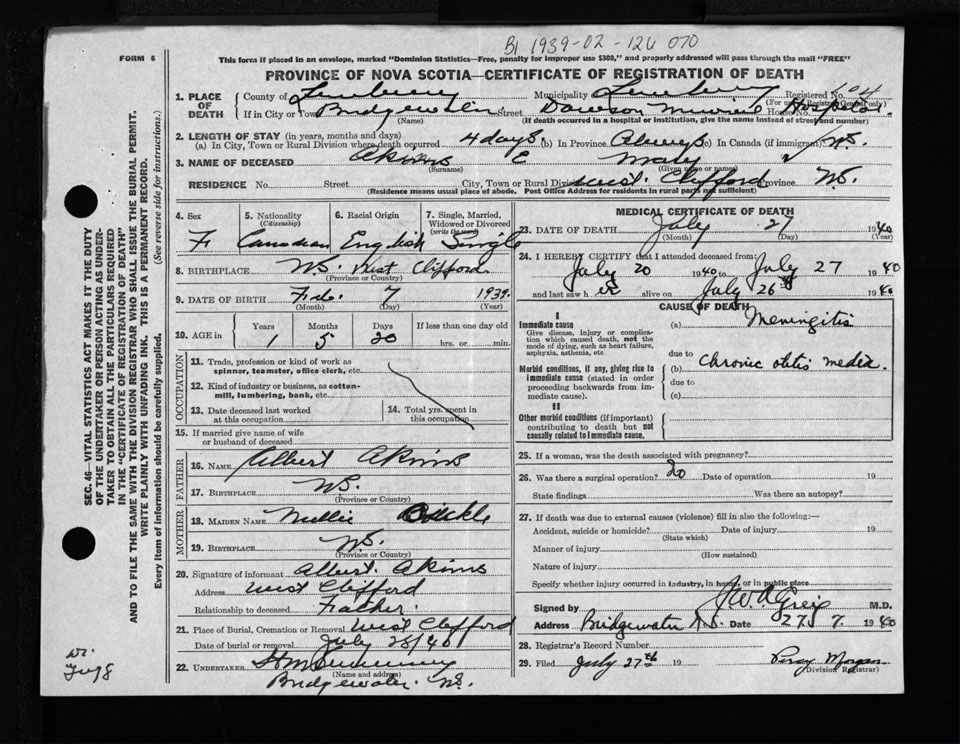 B1 1939-02-126070
FORM 6
This form if placed in an envelope, marked "Dominion Statistics—Free, penalty for improper use $300," and properly addressed will pass through the mail "FREE"
PROVINCE OF NOVA SCOTIA—CERTIFICATE OF REGISTRATION OF DEATH
1. PLACE OF DEATH
County of Lunenburg Municipality Lunenburg Registered No. 64
(For use of Registrar General only)
If in City or Town Bridgewater Street Dawson Memorial Hospital House No.
(Name) (If death occurred in a hospital or institution, give the name instead of street and number)
2. LENGTH OF STAY (in years, months and days)
(a) In City, Town or Rural Division where death occurred 4 days (b) In Province Always (c) In Canada (if immigrant) N.S.
3. NAME OF DECEASED Akins E Mary
(Surname) (Given name or names)
RESIDENCE No. Street City, Town or Rural Div. West Clifford Province N.S.
(Residence means usual place of abode. Post Office Address for residents in rural parts not sufficient)
4. Sex F
5. Nationality (Citizenship) Canadian
6. Racial Origin English
7. Single, Married, Widowed or Divorced (write the word) Single
8. BIRTHPLACE N.S. West Clifford
(Province or Country)
9. DATE OF BIRTH Feb. 7 1939
(Month) (Day) (Year)
10. AGE in Years Months Days If less than one day old
1 5 20 hrs. or min.
OCCUPATION
11. Trade, profession or kind of work as spinner, teamster, office clerk, etc.
12. Kind of industry or business, as cotton-mill, lumbering, bank, etc.
13. Date deceased last worked at this occupation
14. Total yrs. spent in this occupation
15. If married give name of wife or husband of deceased
FATHER
16. NAME Albert Akins
17. BIRTHPLACE N.S.
(Province or Country)
MOTHER
18. MAIDEN NAME Nellie
19. BIRTHPLACE N.S.
(Province or Country)
20. Signature of informant Albert Akins
Address West Clifford
Relationship to deceased Father
21. Place of Burial, Cremation or Removal West Clifford
Date of burial or removal July 28/40
22. UNDERTAKER
(Name and address)
Bridgewater N.S.
MEDICAL CERTIFICATE OF DEATH
23. DATE OF DEATH July 27 1940
(Month) (Day) (Year)
24. I HEREBY CERTIFY that I attended deceased from:
July 20 1940 to July 27 1940
and last saw her alive on July 26th 1940
CAUSE OF DEATH
I
Immediate cause
Give disease, injury or complication which caused death, not the mode of dying, such as heart failure, asphyxia, asthenia, etc.
(a) Meningitis
due to
Morbid conditions, if any, giving rise to immediate cause (stated in order proceeding backwards from immediate cause).
(b) Chronic otitis media.
due to
(c)
II
Other morbid conditions (if important) contributing to death but not causally related to immediate cause.
25. If a woman, was the death associated with pregnancy?
26. Was there a surgical operation? Date of operation 19
State findings Was there an autopsy?
27. If death was due to external causes (violence) fill in also the following:—
Accident, suicide or homicide? Date of injury 19
(State which)
Manner of injury
(How sustained)
Nature of injury
Specify whether injury occurred in industry, in home, or in public place
Signed by J W A Greig M.D.
Address Bridgewater N.S. Date 27. 7. 1940
28. Registrar's Record Number
29. Filed July 27th 19 Percy Morgan
(Division Registrar)
SEC. 46—VITAL STATISTICS ACT MAKES IT THE DUTY
OF THE UNDERTAKER OR PERSON ACTING AS UNDER-
TAKER TO OBTAIN ALL THE PARTICULARS REQUIRED
IN THE "CERTIFICATE OF REGISTRATION OF DEATH"
AND TO FILE THE SAME WITH THE DIVISION REGISTRAR WHO SHALL ISSUE THE BURIAL PERMIT.
(See reverse side for instructions.)
WRITE PLAINLY WITH UNFADING INK. THIS IS A PERMANENT RECORD.
Every item of information should be carefully supplied.